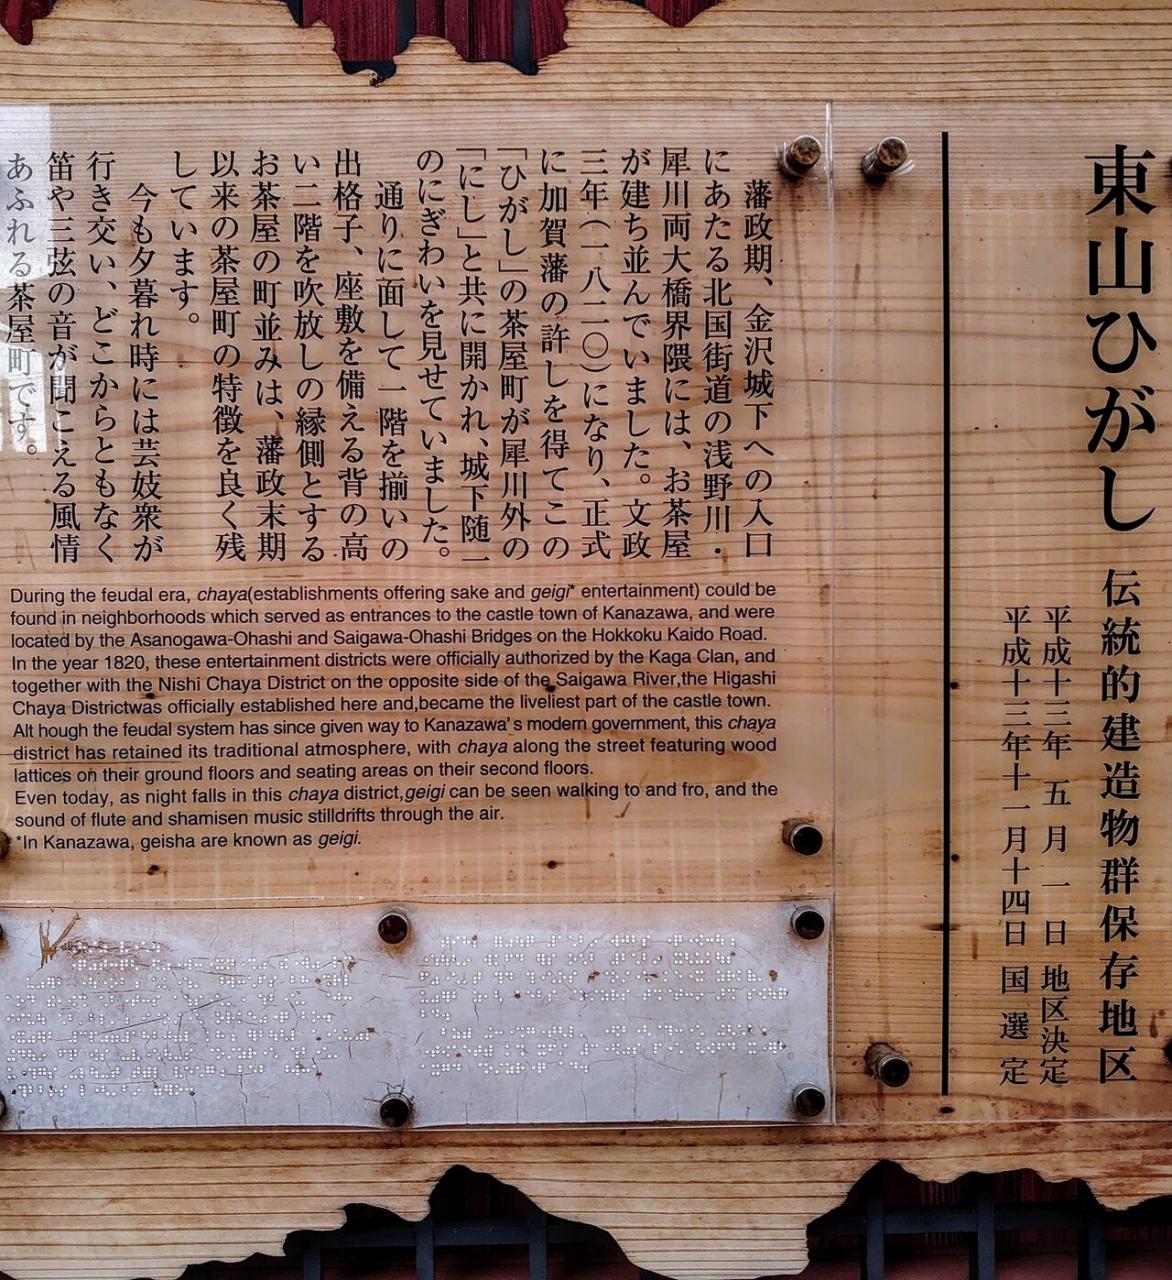 東山ひがし 伝統的建造物群保存地区
平成十三年 五月 一日 地区決定
平成十三年十一月十四日 国選定
藩政期、金沢城下への入口
にあたる北国街道の浅野川・
犀川両大橋界隈には、お茶屋
が建ち並んでいました。文政
三年(一八二〇)になり、正式
に加賀藩の許しを得てこの
「ひがし」の茶屋町が犀川外の
「にし」と共に開かれ、城下随一
のにぎわいを見せていました。
通りに面して一階を揃いの
出格子、座敷を備える背の高
い二階を吹放しの縁側とする
お茶屋の町並みは、藩政末期
以来の茶屋町の特徴を良く残
しています。
今も夕暮れ時には芸妓衆が
行き交い、どこからともなく
笛や三弦の音が聞こえる風情
あふれる茶屋町です。
During the feudal era, chaya(establishments offering sake and geigi* entertainment) could be
found in neighborhoods which served as entrances to the castle town of Kanazawa, and were
located by the Asanogawa-Ohashi and Saigawa-Ohashi Bridges on the Hokkoku Kaido Road.
In the year 1820, these entertainment districts were officially authorized by the Kaga Clan, and
together with the Nishi Chaya District on the opposite side of the Saigawa River,the Higashi
Chaya Districtwas officially established here and,became the liveliest part of the castle town.
Alt hough the feudal system has since given way to Kanazawa's modern government, this chaya
district has retained its traditional atmosphere, with chaya along the street featuring wood
lattices on their ground floors and seating areas on their second floors.
Even today, as night falls in this chaya district,geigi can be seen walking to and fro, and the
sound of flute and shamisen music stilldrifts through the air.
*In Kanazawa, geisha are known as geigi.